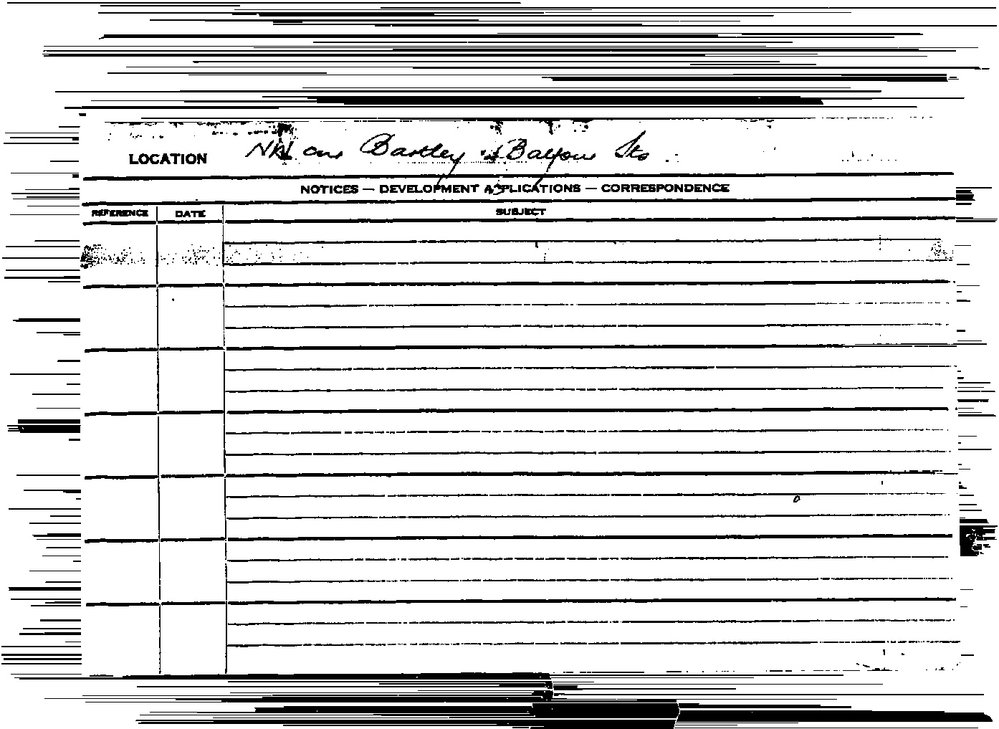 LOCATION NW cnr Bartley & Balfour Sts
NOTICES — DEVELOPMENT APPLICATIONS — CORRESPONDENCE
REFERENCE DATE SUBJECT